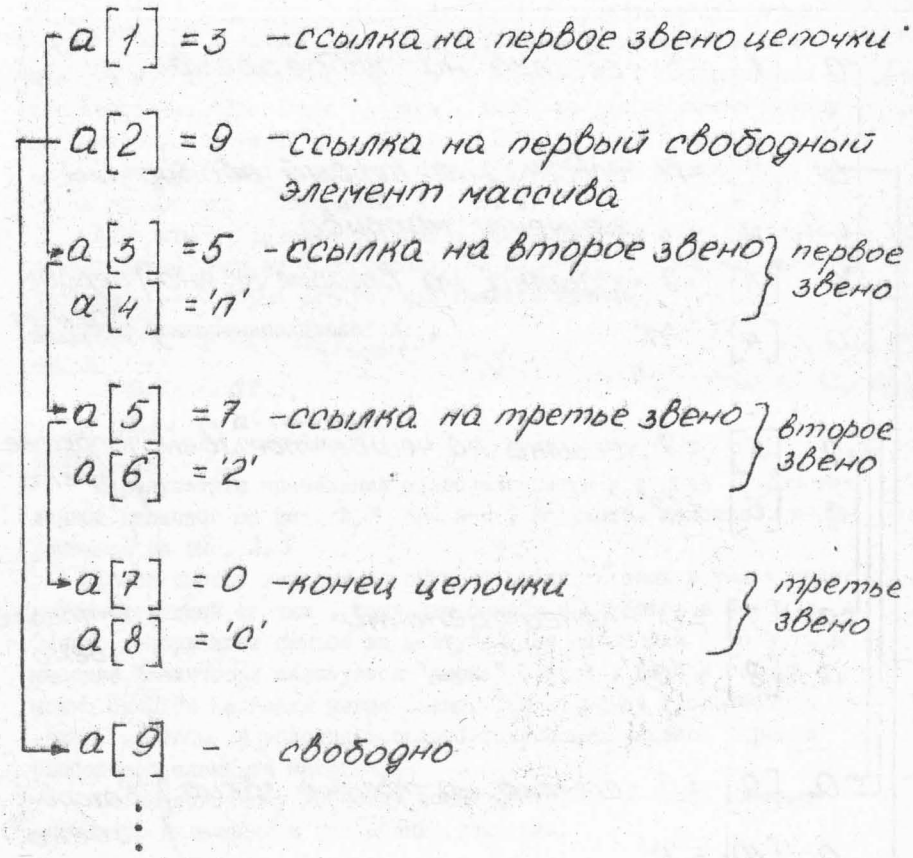 a [1] =3 – ссылка на первое звено цепочки
a [2] =9 – ссылка на первый свободный
элемент массива
a [3] =5 – ссылка на второе звено } первое
a [4] ='п' звено
a [5] =7 – ссылка на третье звено } второе
a [6] ='2' звено
a [7] =0 – конец цепочки } третье
a [8] ='0' звено
a [9] – свободно
⋮